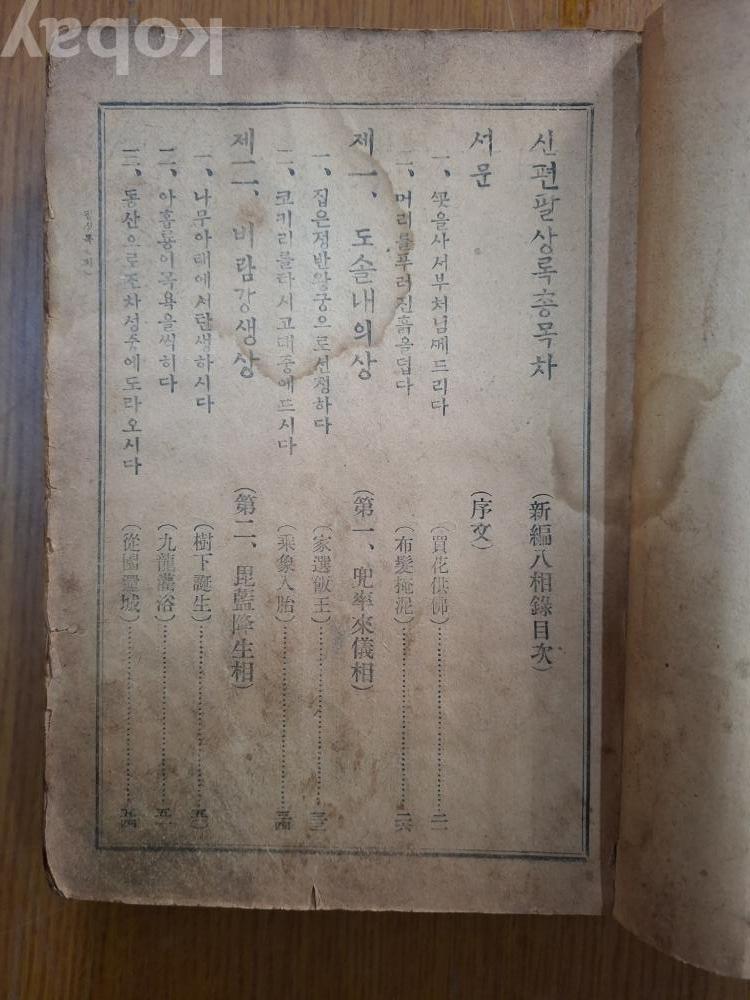 신편팔상록총목차 (新編八相錄目次)
서문 (序文)
一、꼿을사서부처님께드리다 (買花供佛) 二一
二、머리를푸러진흙을덥다 (布髮掩泥) 二六
제一、도솔내의상 (第一、兜率來儀相)
一、집은정반왕궁으로선정하다 (家選飯王)
二、코키리를타시고태중에드시다 (乘象入胎) 三四
제二、비람강생상 (第二、毘藍降生相)
一、나무아래에서탄생하시다 (樹下誕生) 五〇
二、아홉룡이목욕을씩히다 (九龍灌浴) 五一
三、동산으로조차성중에도라오시다 (從園還城) 五四
kobay